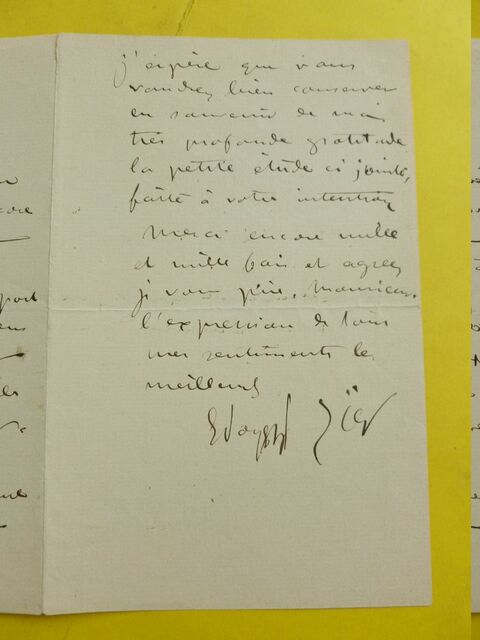 j'espère que vous
voudrez bien conserver
en souvenir de ma
très profonde gratitude
la petite étude ci jointe,
faite à votre intention
Merci encore mille
et mille fois et agréez
je vous prie, Monsieur,
l'expression de tous
mes sentiments les
meilleurs
Edouard Zier